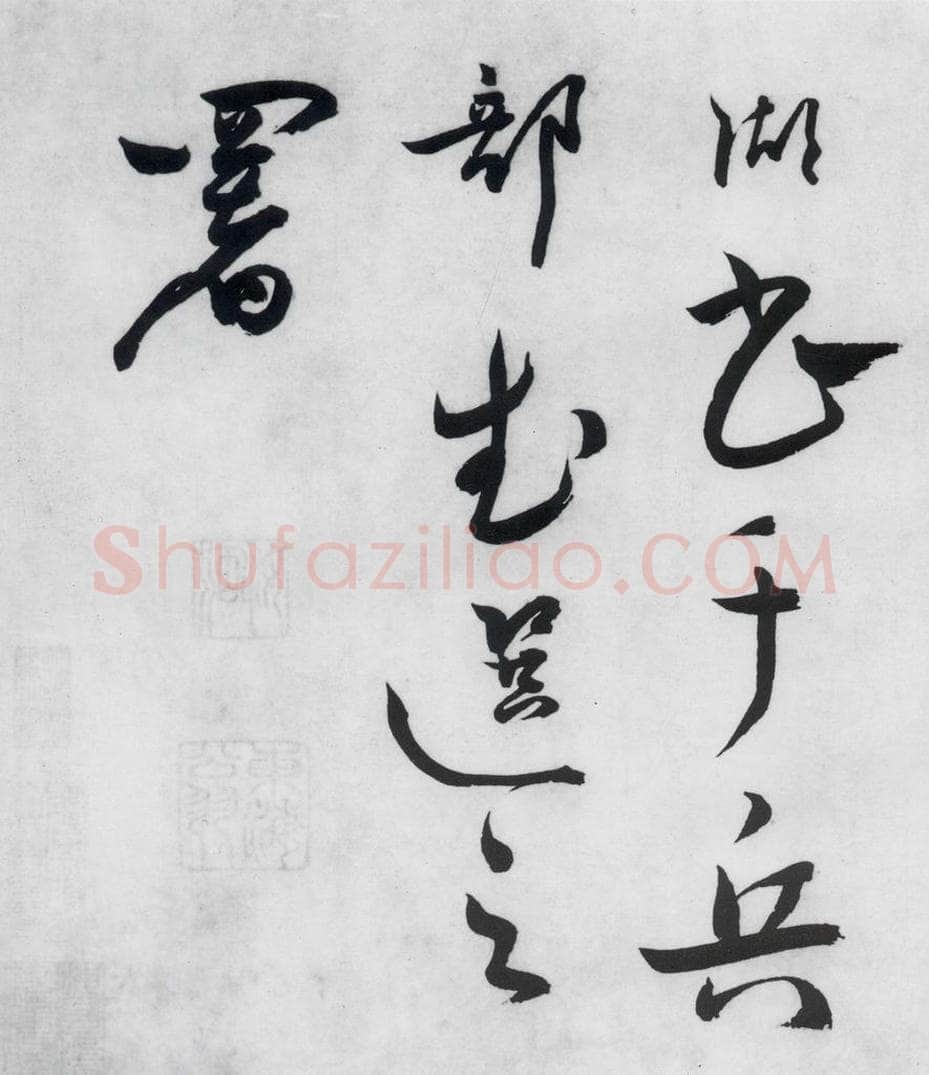 湖书于兵
部武選之
署
Shufaziliao.COM